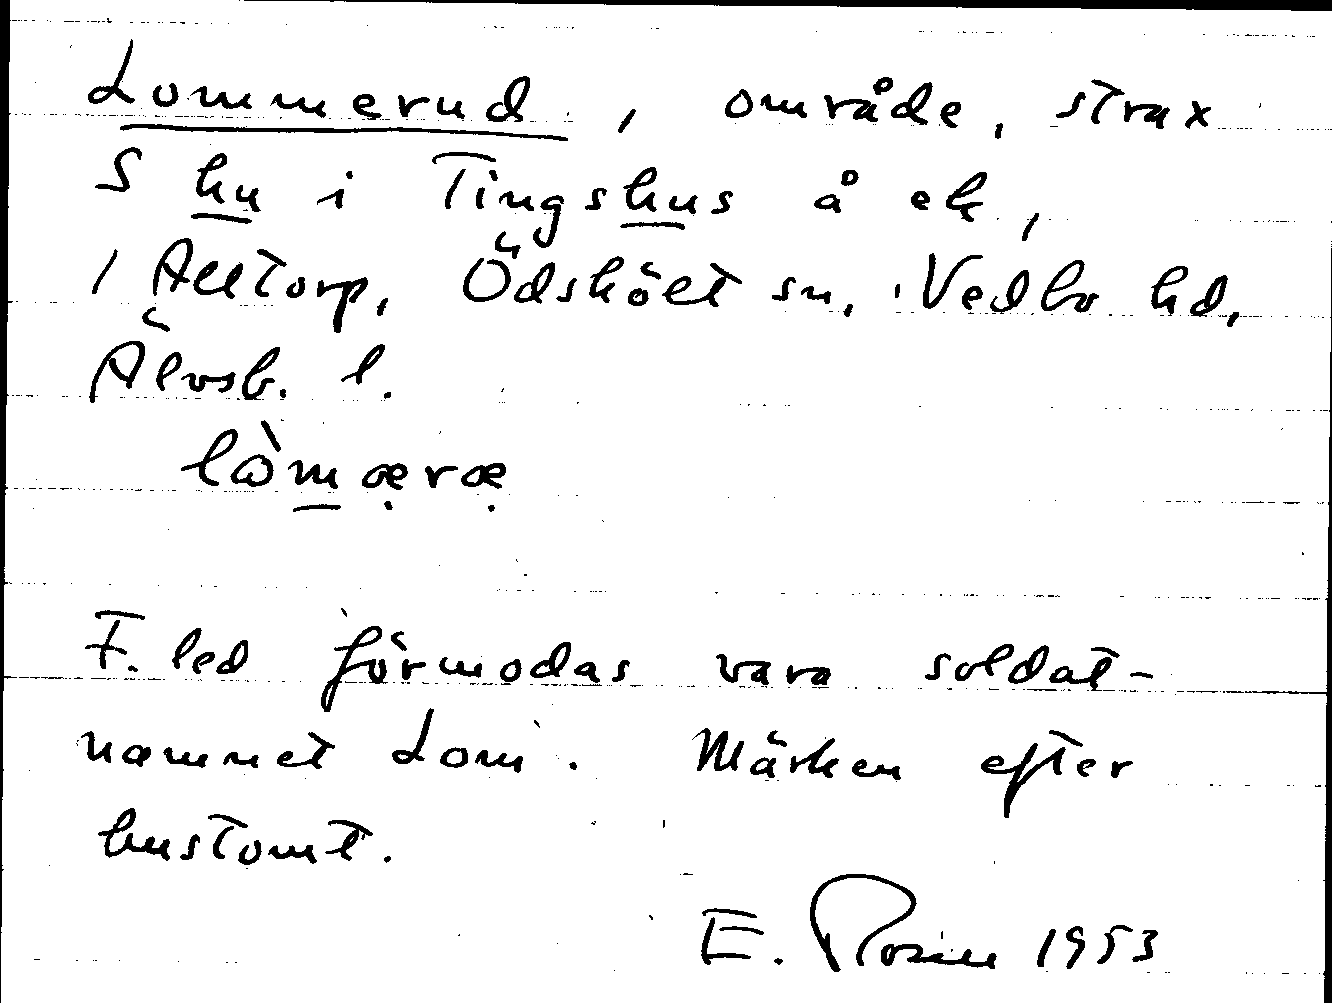 Lommerud, område, strax
S hu i Tingshus å ek,
1 Alltorp, Ödskölt sn, Vedbo hd,
Älvsb. l.
lòmæræ
F. led förmodas vara soldat-
namnet Lom. Märken efter
hustomt.
E. Rosén 1953